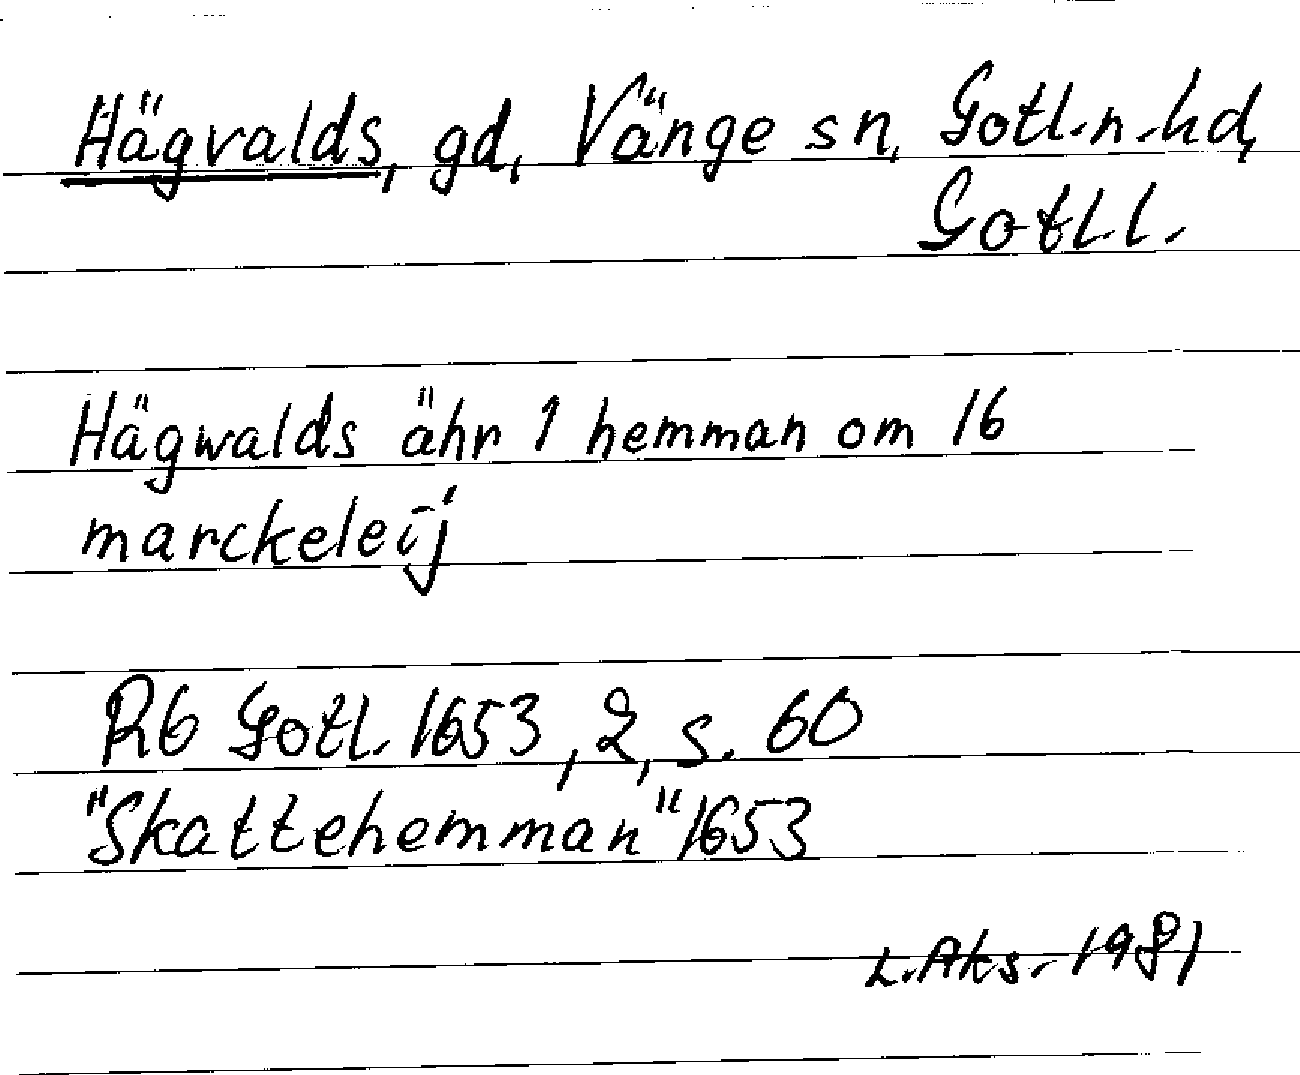 Hägvalds, gd, Vänge sn, Gotl. n. hd,
Gotl. l.
Hägwalds ähr 1 hemman om 16
marckeleij
Rb Gotl. 1653, 2, s. 60
"Skattehemman" 1653
L. Aks. 1981